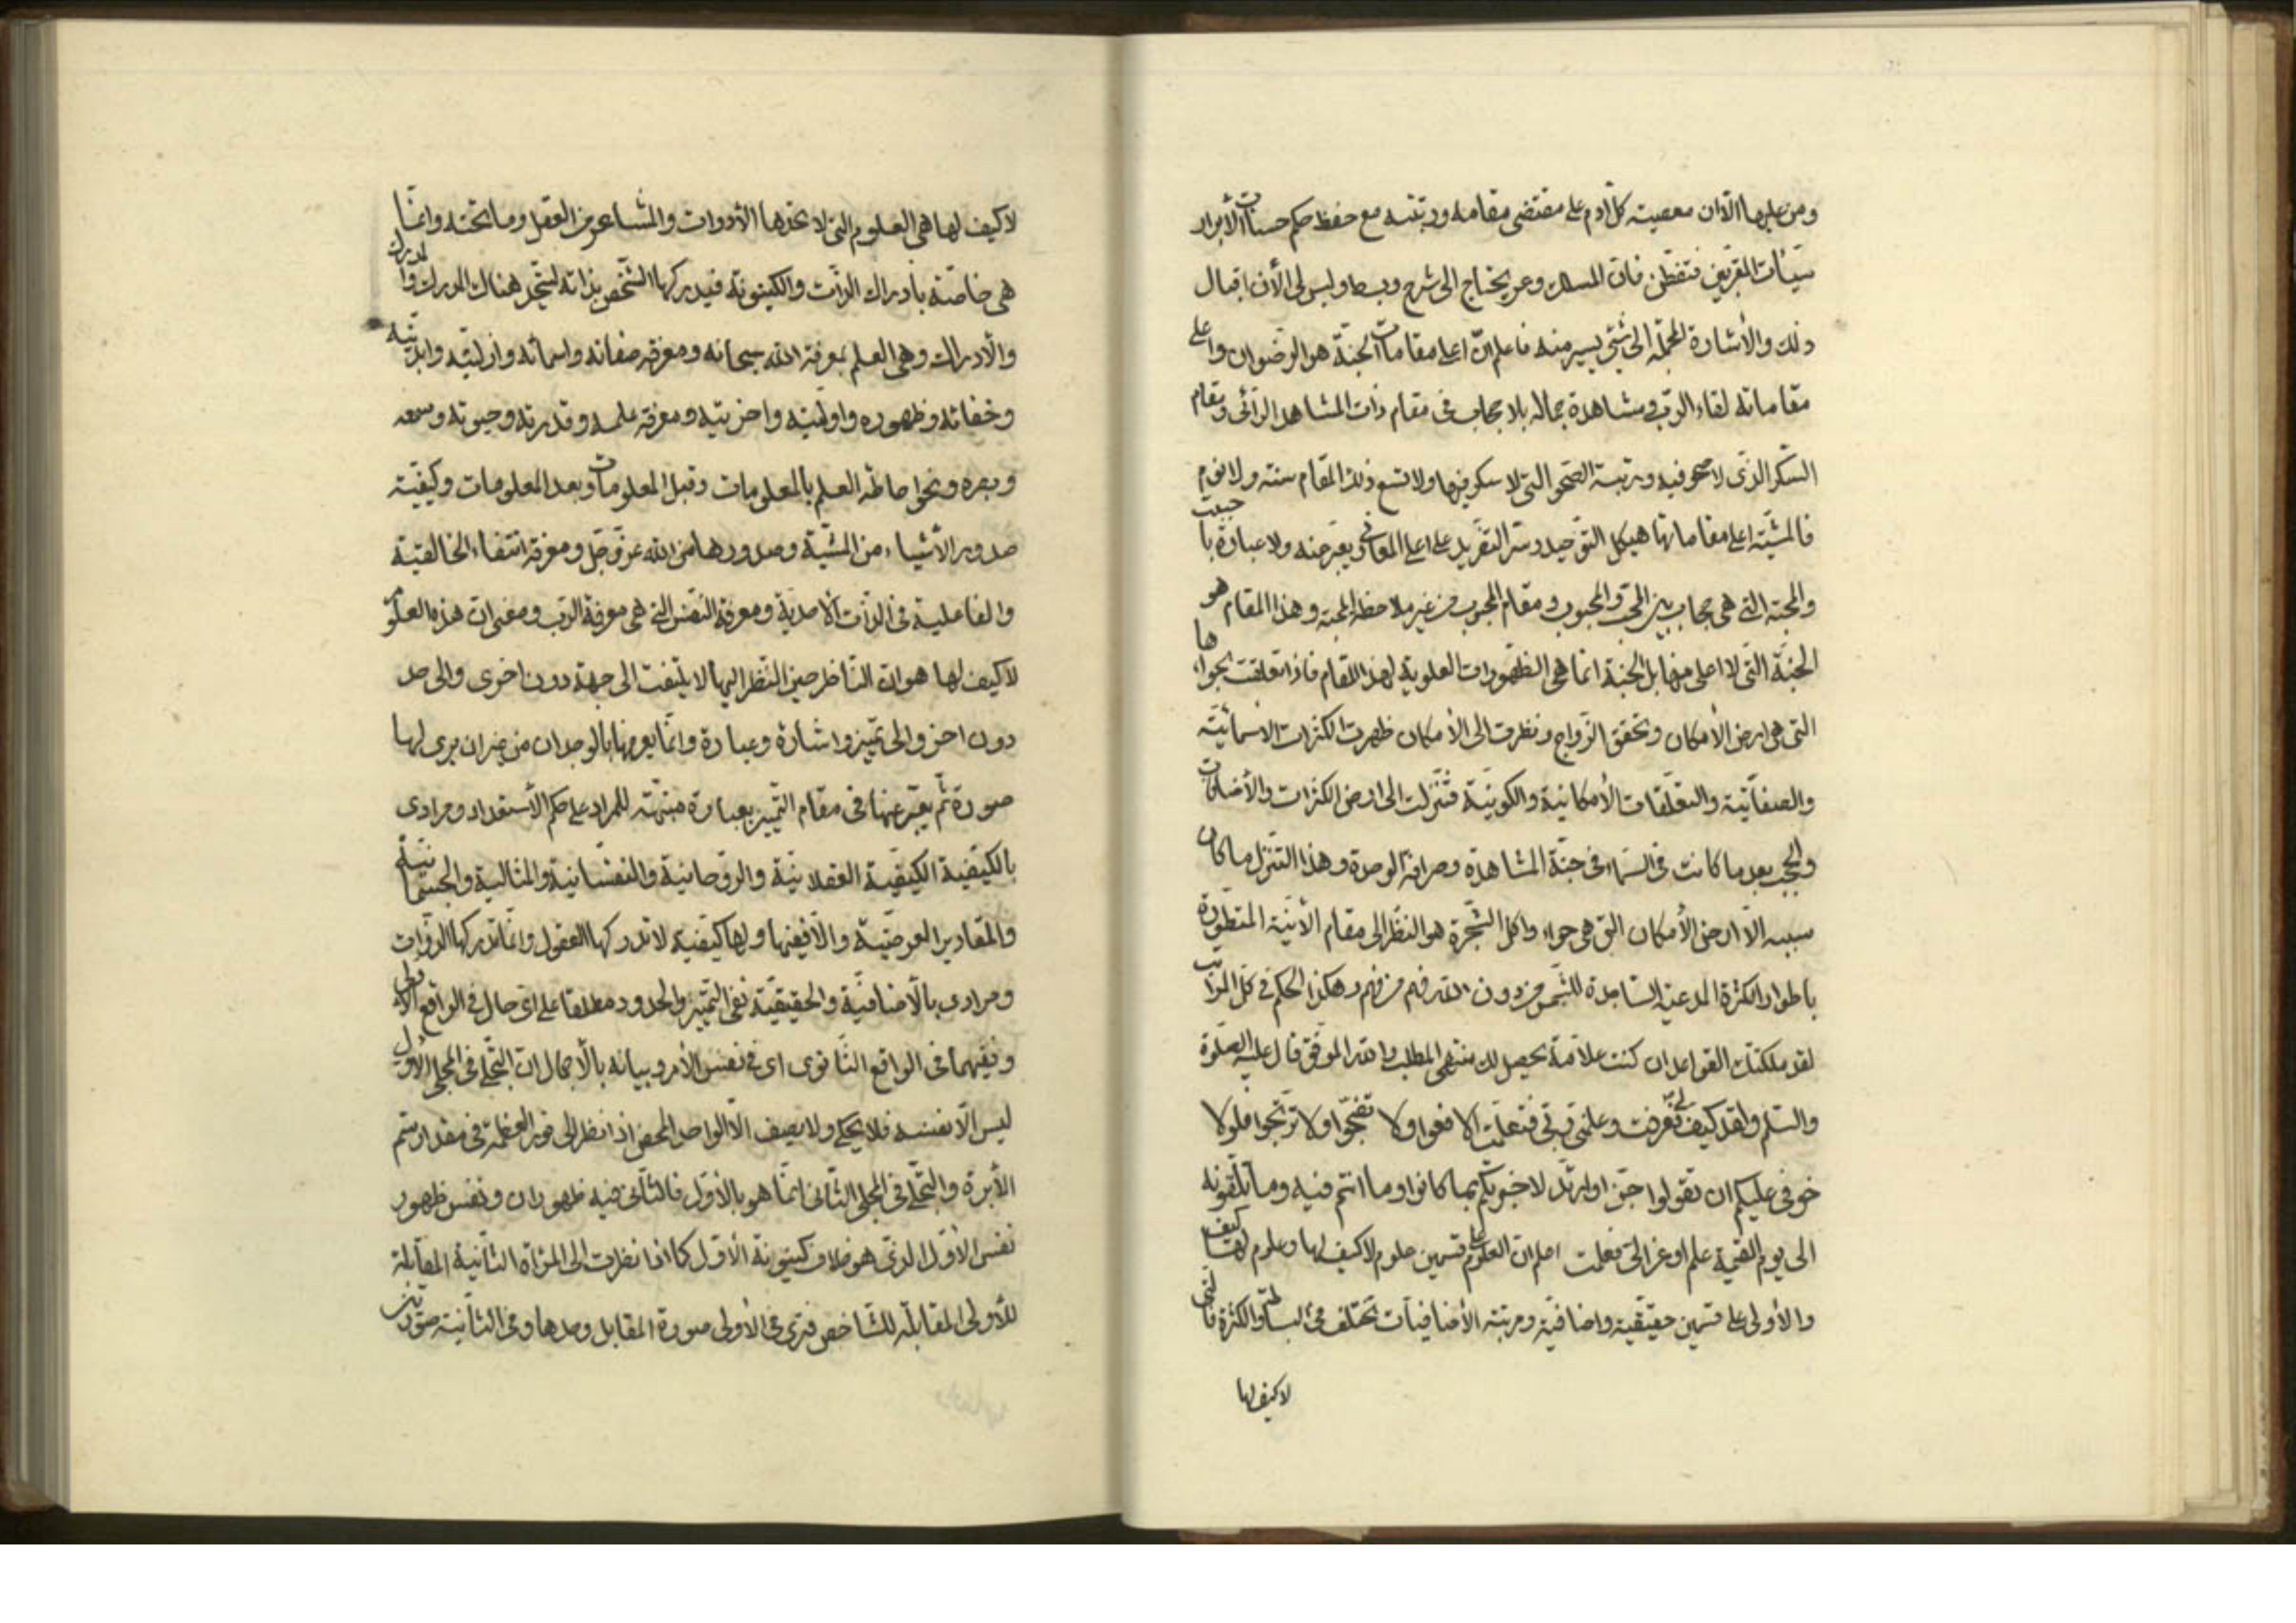 ومن عليها الا ان معصية كل ادم على مقتضى مقامه ورتبته مع حفظ حكم حسنات الأبرار
سيئات المقربين فتفطن فان المسلك وعر يحتاج الى شرح وبسط وليس لى الأن اقبال
ذلك والأشارة المجملة الى شئ يسير منه فاعلم ان اعلى مقامات الجنة هو الرضوان واعلى
مقاماته لقاء الرب ومشاهدة جماله بلا حجاب فى مقام ذات المشاهد الرائى ومقام
السكر الذى لا صحو فيه ورتبة الصحو التى لا سكر فيها ولا تسع ذلك المقام سنة ولا نوم
فالمشية اعلى مقاماتها هيكل التوحيد وسر التفريد على اعلى المعانى يعبر عنه ولا عبارة
والمحبة التى هى حجاب بين المحب والمحبوب ومقام المحبوب من غير ملاحظة المحبة وهذا المقام هو
الجنة التى لا اعلى منها بل الجنة انما هى الظهورات العلوية لهذا المقام فاذا تعلقت بحواء ها
التى هى ارض الأمكان وتحقق الزواج ونظرت الى الأمكان ظهرت الكثرات الاسمائية
والصفاتية والتعلقات الأمكانية والكونية فتنزلت الى ارض الكثرات والأضافات
والحجب بعد ما كانت فى السماء فى جنة المشاهدة وصرافة الوحدة وهذا التنزل ما كان
سببه الا ارض الأمكان التى هى حواء واكل الشجرة هو النظر الى مقام الأنية المتطورة
باطوار الكثرة المدعية الساجدة للشمس من دون الله فهم من فهم وهكذا الحكم فى كل المراتب
لقد ملكتك القواعد ان كنت علامة يحصل لك منتهى المطلب والله الموفق قال عليه الصلوة
والسلم ولقد كيف لى فعرفت وعلمنى ربى فتعلمت الا فعوا ولا تضجوا ولا ترتجوا فلولا
خوفى عليكم ان تقولوا جن او ارتد لاخبرتكم بما كانوا وما انتم فيه وما تلقونه
الى يوم القيمة علم اوعز الى فعلمت اعلم ان العلوم على قسمين علوم لا كيف لها وعلوم لها كيف
والأولى على قسمين حقيقية واضافية ومرتبة الأضافيات تختلف فى البساطة والكثرة فالتى
لا كيف لها
لا كيف لها هى العلوم التى لا تحدها الأدوات والمشاعر من العقل وما تحته وانما
هى خاصة بادراك الذات والكينونة فيدركها الشخص بذاته ليتحد هناك المدرك والمدرك
والادراك وهى العلم بمعرفة الله سبحانه ومعرفة صفاته واسمائه وازليته وابديته
وخفائه وظهوره واوليته واخريته ومعرفة علمه وقدرته وحيوته وسمعه
وبصره ونحوا حاطة العلم بالمعلومات وقبل المعلومات وبعد المعلومات وكيفية
صدور الأشياء من المشية وصدورها من الله عز وجل ومعرفة انتفاء الخالقية
والفاعلية فى الذات الاحدية ومعرفة النفس التى هى معرفة الرب ومعنى ان هذه العلوم
لا كيف لها هو ان الناظر حين النظر اليها لا يلتفت الى جهة دون اخرى والى حد
دون اخر والى تميز واشارة وعبارة وانما يعرفها بالوجدان من غير ان يرى لها
صورة ثم يعبر عنها فى مقام التميز بعبارة منبهة للمراد على حكم الأستعداد ومرادى
بالكيفية الكيفية العقلانية والروحانية والنفسانية والمثالية والجسمانية
والمقادير العرضية والا فعنها ولها كيفية لا تدركها العقول وانما تدركها الذوات
ومرادى بالأضافية والحقيقية نفى التميز والحدود مطلقا على اى حال فى الواقع الاولى
ونفيهما فى الواقع الثانوى اى فى نفس الأمر وبيانه بالأجمال ان التجلى فى المجلى الأول
ليس الا نفسه فلا يحكى ولا يصف الا الواحد المحض اذا نظر الى نور العظمة فى مقدار سم
الأبرة والتجلى فى المجلى الثانى انما هو بالأول فالثانى فيه ظهوران ونفس ظهور
نفس الأول الذى هو خلاف كينونة الأول كما اذا نظرت الى المرآة الثانية المقابلة
للأولى المقابلة للشاخص فترى فى الأولى صورة المقابل وحدها وفى الثانية صورتين